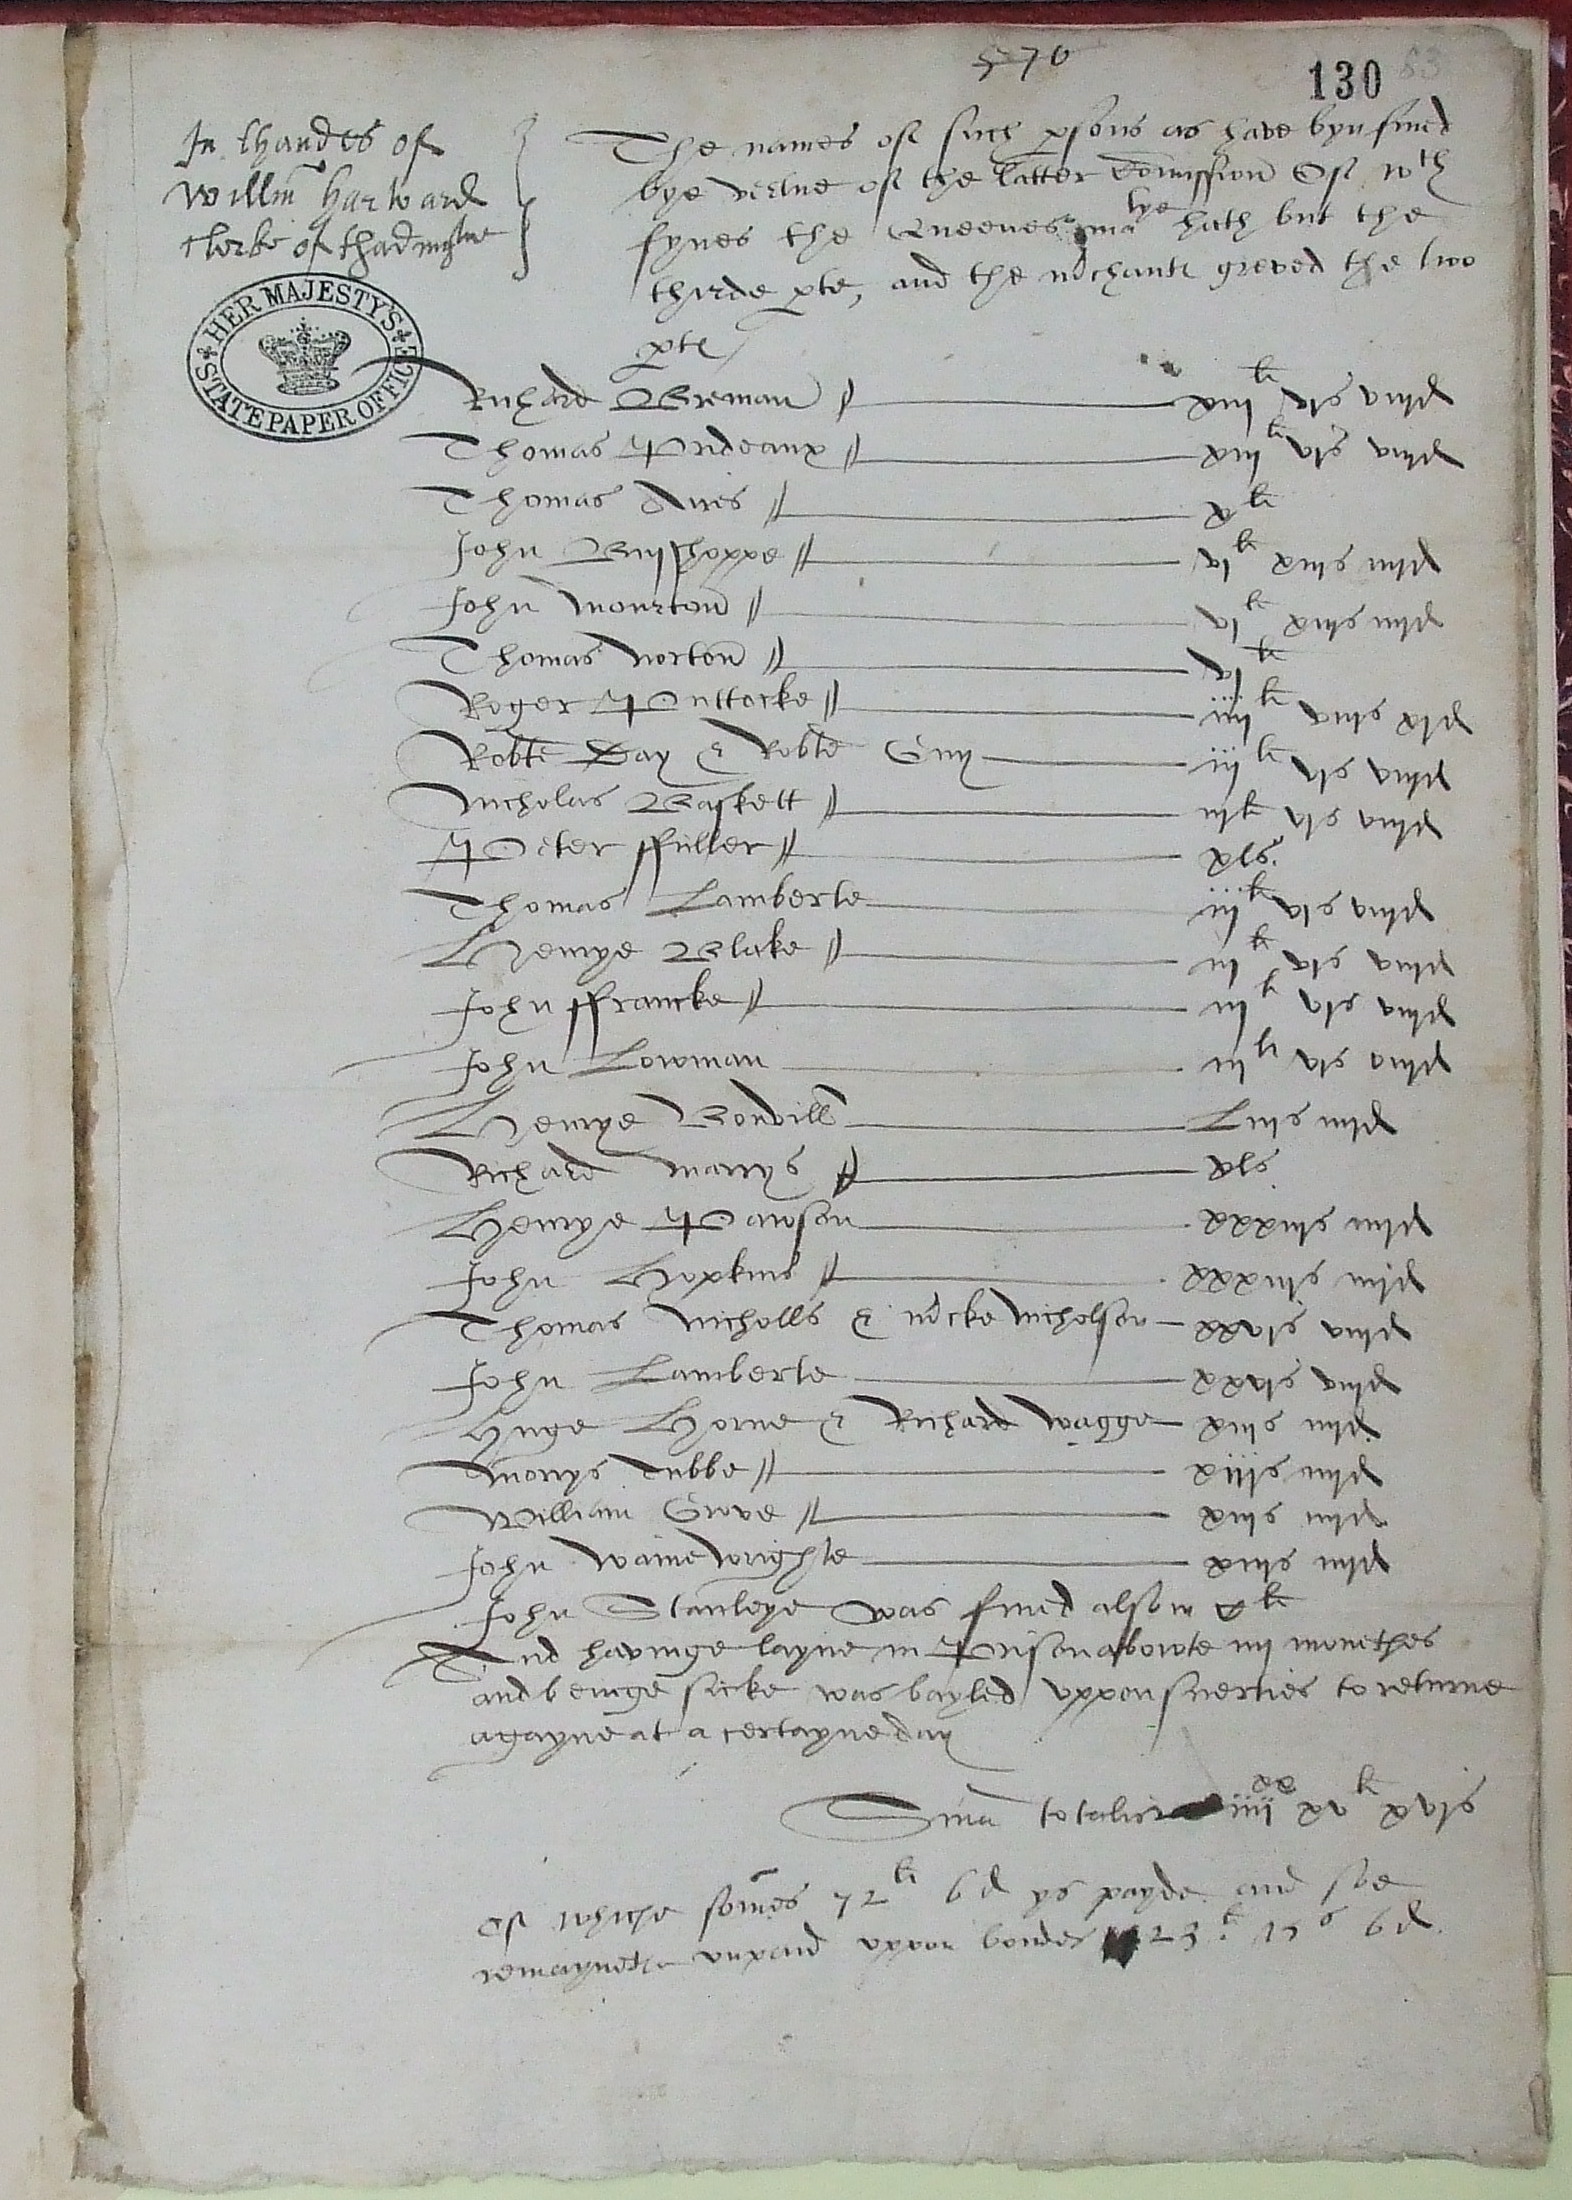 570
130 83
In thandes of
Willm Harward
Clerke of thadmyltye
The names of such psons as have byn fined
bye vertue of the latter Comission Of wch
fynes the Queenes matye hath but the
thirde pte, and the mchante greved the two
pte
HER MAJESTY'S STATE PAPER OFFICE
Richard Breman xiijli vjs viijd
Thomas Prideaux xiijli vjs viijd
Thomas Aires xli
John Bysshoppe vjli xiijs iiijd
John Mourton vjli xiijs iiijd
Thomas Norton vjli
Roger Puttocke iiijli viijs xjd
Robte Day & Robte Guy iijli vjs viijd
Nicholas Baskett iijli vjs viijd
Peter ffuller xls.
Thomas Lamberte iijli vjs viijd
Henrye Blake iijli vjs viijd
John ffrancke iijli vjs viijd
John Lowman iijli vjs viijd
Henrye Bonvill Liijs iiijd
Richard Marrys xls
Henrye Pawson xxxiijs iiijd
John Hopkins xxxiijs iiijd
Thomas Nicholls & Nicholson xxvjs viijd
John Lamberte xxvjs viijd
Huge Horne & Richard Wagge xiijs iiijd
Morrys Tubbe xiijs iiijd
William Grove xiijs iiijd
John Wainewrighte xiijs iiijd
John Stanleye was fined also in xli
And havinge layne in Prison abowte iiij monethes
and beinge sicke was bayled vppon suerties to returne
agayne at a certayne day
Suma totalis iiijxx xvli xvjs
Of whiche somes 72li 6d ys payde and soe
remayneth vnpaid vppon bondes 23li 17s 6d.